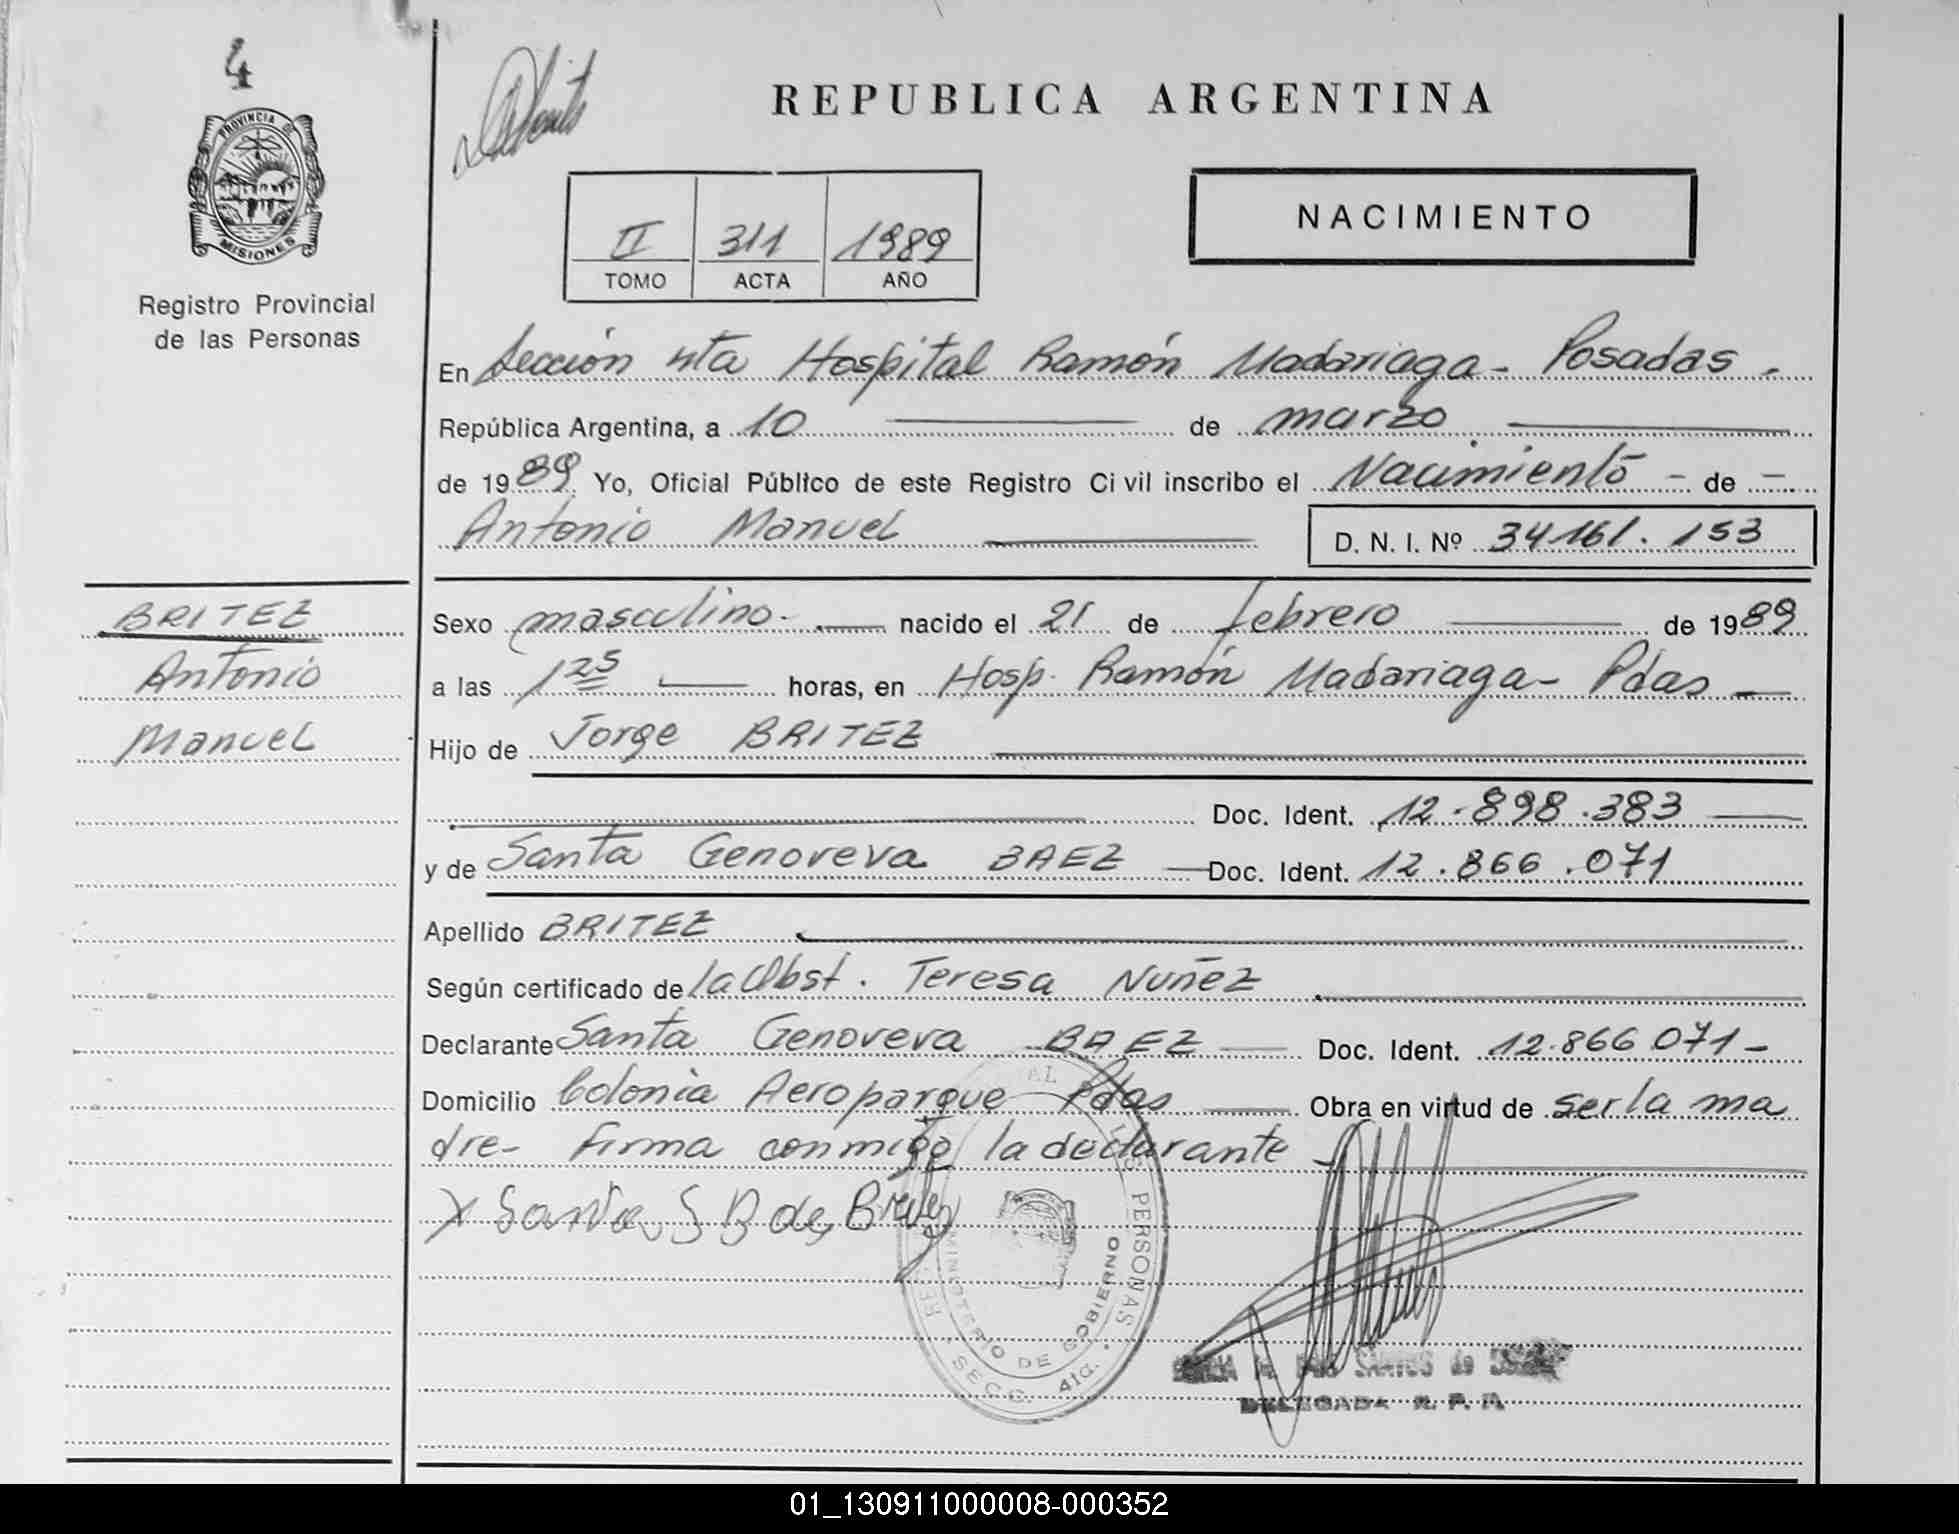 4
PROVINCIA DE
MISIONES
Registro Provincial
de las Personas
REPUBLICA ARGENTINA
II 311 1989
TOMO ACTA AÑO
NACIMIENTO
En Sección 4ta Hospital Ramón Madariaga - Posadas -
República Argentina, a 10 de marzo
de 1989 Yo, Oficial Público de este Registro Civil inscribo el Nacimiento - de -
Antonio Manuel D. N. I. Nº 34161.153
BRITEZ
Antonio
Manuel
Sexo masculino - nacido el 21 de febrero de 1989
a las 1 25 horas, en Hosp. Ramón Madariaga - Pdas -
Hijo de Jorge BRITEZ
Doc. Ident. 12.898.383
y de Santa Genoveva BAEZ Doc. Ident. 12.866.071
Apellido BRITEZ
Según certificado de la Obst. Teresa Nuñez
Declarante Santa Genoveva BAEZ Doc. Ident. 12.866 071 -
Domicilio Colonia Aeroparque Pdas Obra en virtud de ser la ma
dre - Firma conmigo la declarante
X Santa S B de Britez
PERSONAS
MINISTERIO DE GOBIERNO
SECC. 4ta.
SANTOS de
DELEGADA R. P. P.
01_130911000008-000352